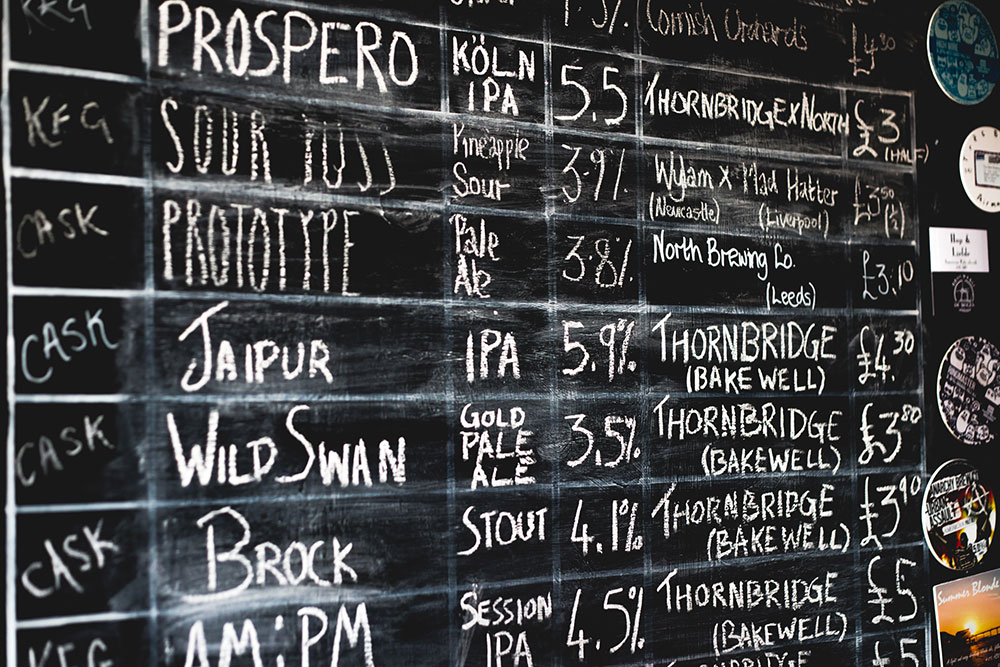 KEG
Cornish Orchards
£4.80
PROSPERO
KÖLN
IPA
5.5
THORNBRIDGE X NORTH
£3
(HALF)
KEG
SOUR TOSS
Pineapple
Sour
3.9%
Wylam X Mad Hatter
(Newcastle) (Liverpool)
£3.50
(½)
CASK
PROTOTYPE
Pale
Ale
3.8%
North Brewing Co.
(Leeds)
£3.10
CASK
JAIPUR
IPA
5.9%
THORNBRIDGE
(BAKEWELL)
£4.30
CASK
WILD SWAN
GOLD
PALE
ALE
3.5%
THORNBRIDGE
(BAKEWELL)
£3.80
CASK
BROCK
STOUT
4.1%
THORNBRIDGE
(BAKEWELL)
£3.90
KEG
AM:PM
SESSION
IPA
4.5%
THORNBRIDGE
(BAKEWELL)
£5
£5
Hop &
Summer Blonde